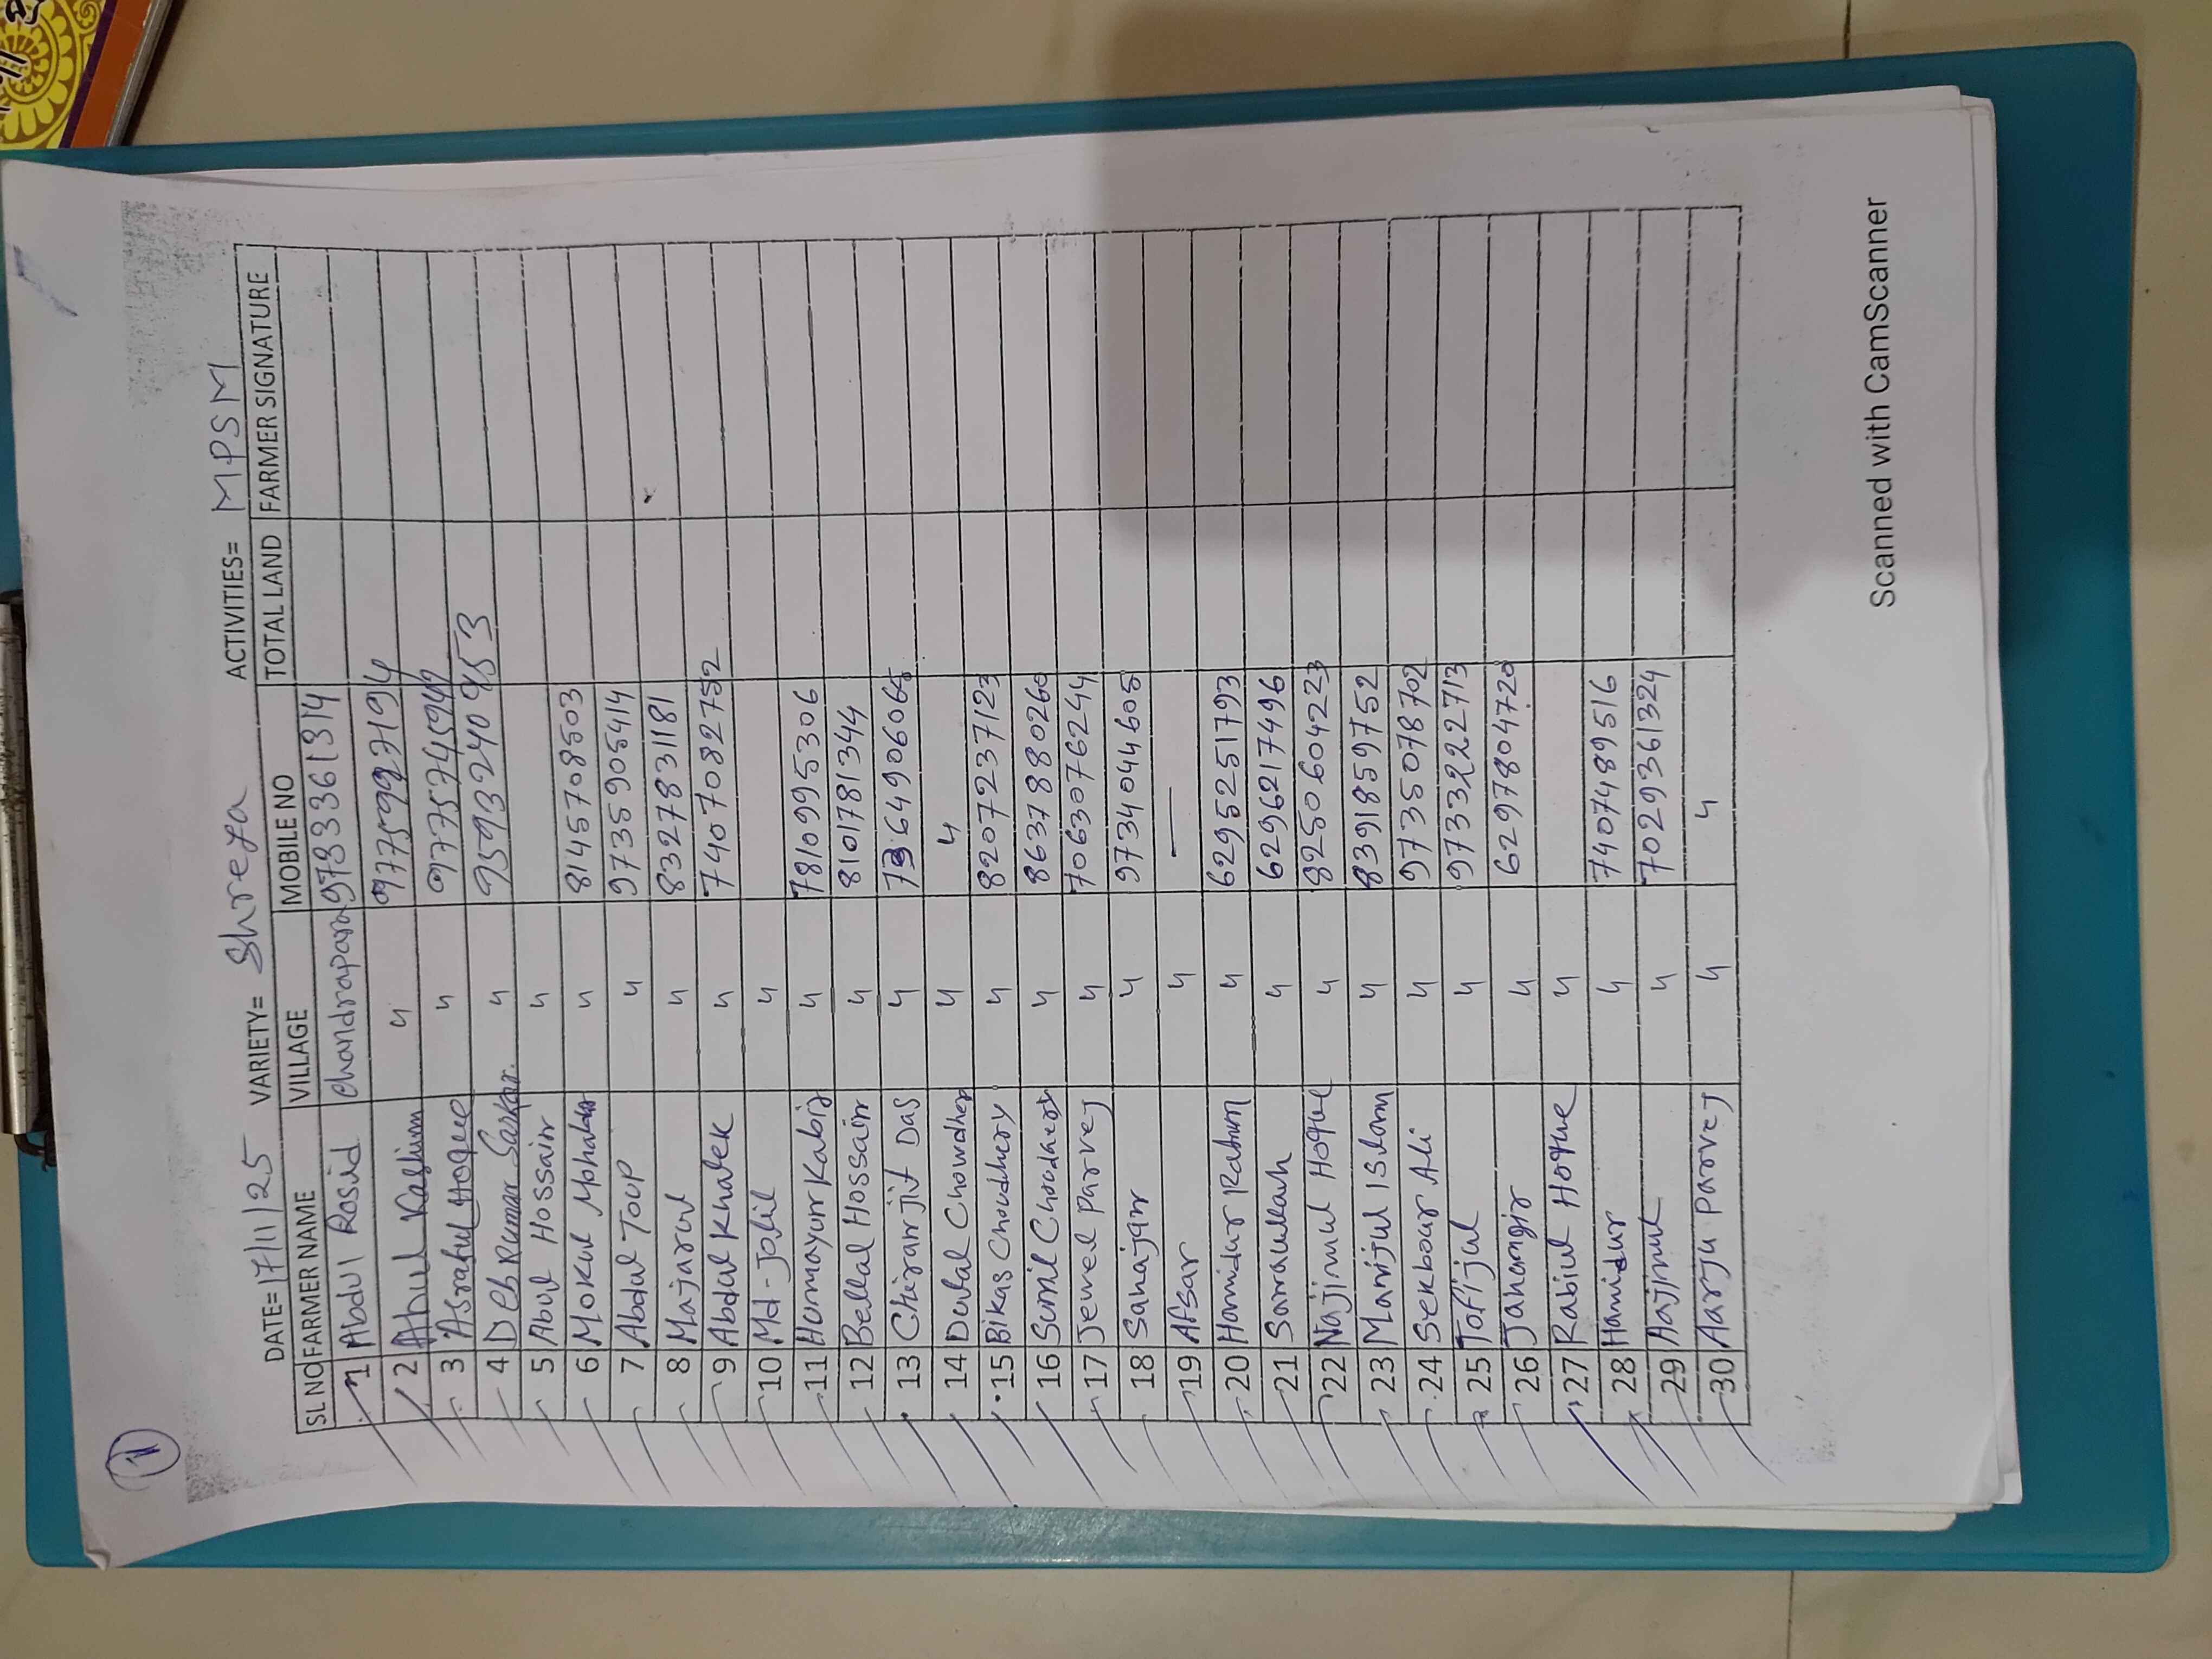 1
DATE= 17/11/25 VARIETY= Shreya ACTIVITIES= MPSM
SL NO FARMER NAME VILLAGE MOBILE NO TOTAL LAND FARMER SIGNATURE
1 Abdul Rosid Chandrapara 9783361314
2 Abul Kashim 〃
3 Asraful Hoque 〃
4 Deb Kumar Sarkar. 〃
5 Abul Hossain 〃
6 Mokul 〃 8145708503
7 Abdul Toup 〃 9735905414
8 Majarul 〃 8327831181
9 Abdul Khalek 〃 7407082752
10 Md-Jalil 〃
11 Humayun Kabir 〃 7810995306
12 Bellal Hossain 〃 8101781344
13 Chiranjit Das 〃
14 Dulal Chowdhery 〃 〃
15 Bikas Choudhery 〃 8207237123
16 Sunil Choudhery 〃 8637880260
17 Jewel Parvej 〃 7063076244
18 Sahajan 〃 9734044605
19 Afsar 〃 —
20 Hamidur Rahim 〃 6295251793
21 Sanaullah 〃 6296217496
22 Najimul Hoque 〃 8250604223
23 Manijul Islam 〃 8391859752
24 Sekboar Ali 〃 9735078702
25 Tofijul 〃 9733222713
26 Jahangir 〃 6297804720
27 Rabiul Hoque 〃
28 Hamidur 〃 7407489516
29 Aajinul 〃 7029361324
30 Aarju Parvej 〃 〃
Scanned with CamScanner